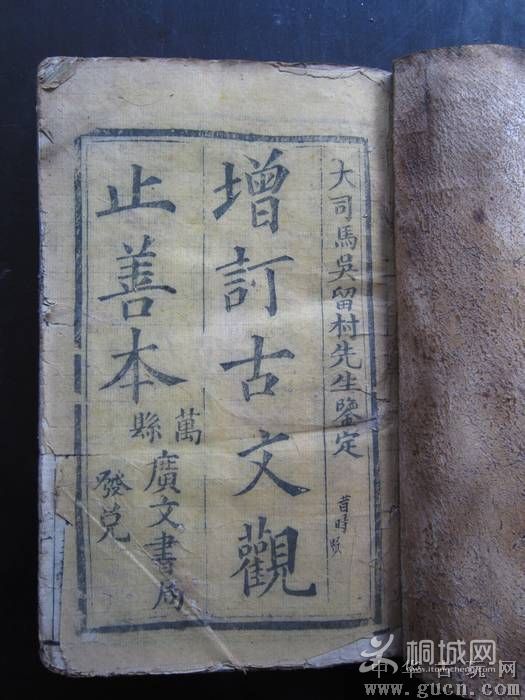 大司馬吳留村先生鑒定
增訂古文觀
止善本
萬縣
廣文書局
發兌
桐城网
www.itongcheng.com
www.gucn.com